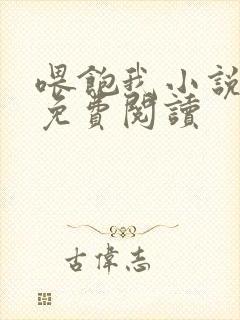 喂飽我 小說
免費閱讀
古偉志